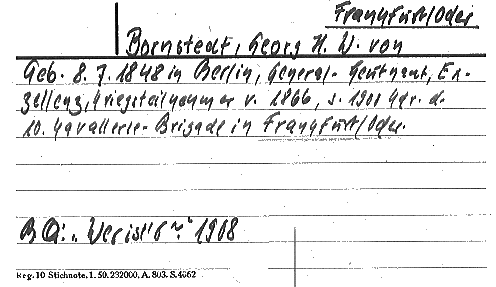 Frankfurt/Oder
Bornstedt, Georg H. W. von
Geb. 8. 7. 1848 in Berlin, General-Leutnant, Ex-
zellenz, Kriegsteilnehmer v. 1866, s. 1901 Kdr. d.
10. Kavallerie-Brigade in Frankfurt/Oder.
BQ: "Wer ist's" 1908
Reg. 10 Stichnote. 1. 50. 232000. A. 803. S. 4662